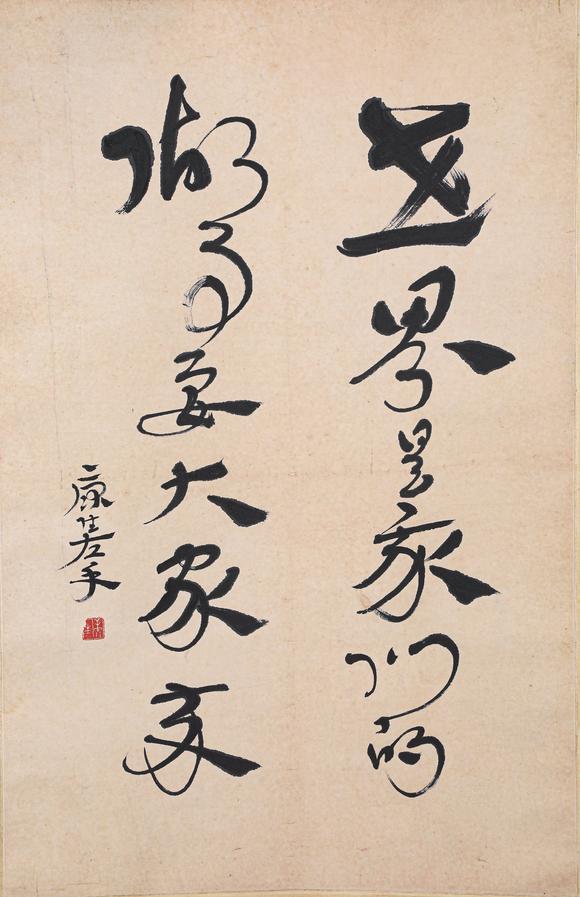 世界是我们的
做事要大家来
康生左手